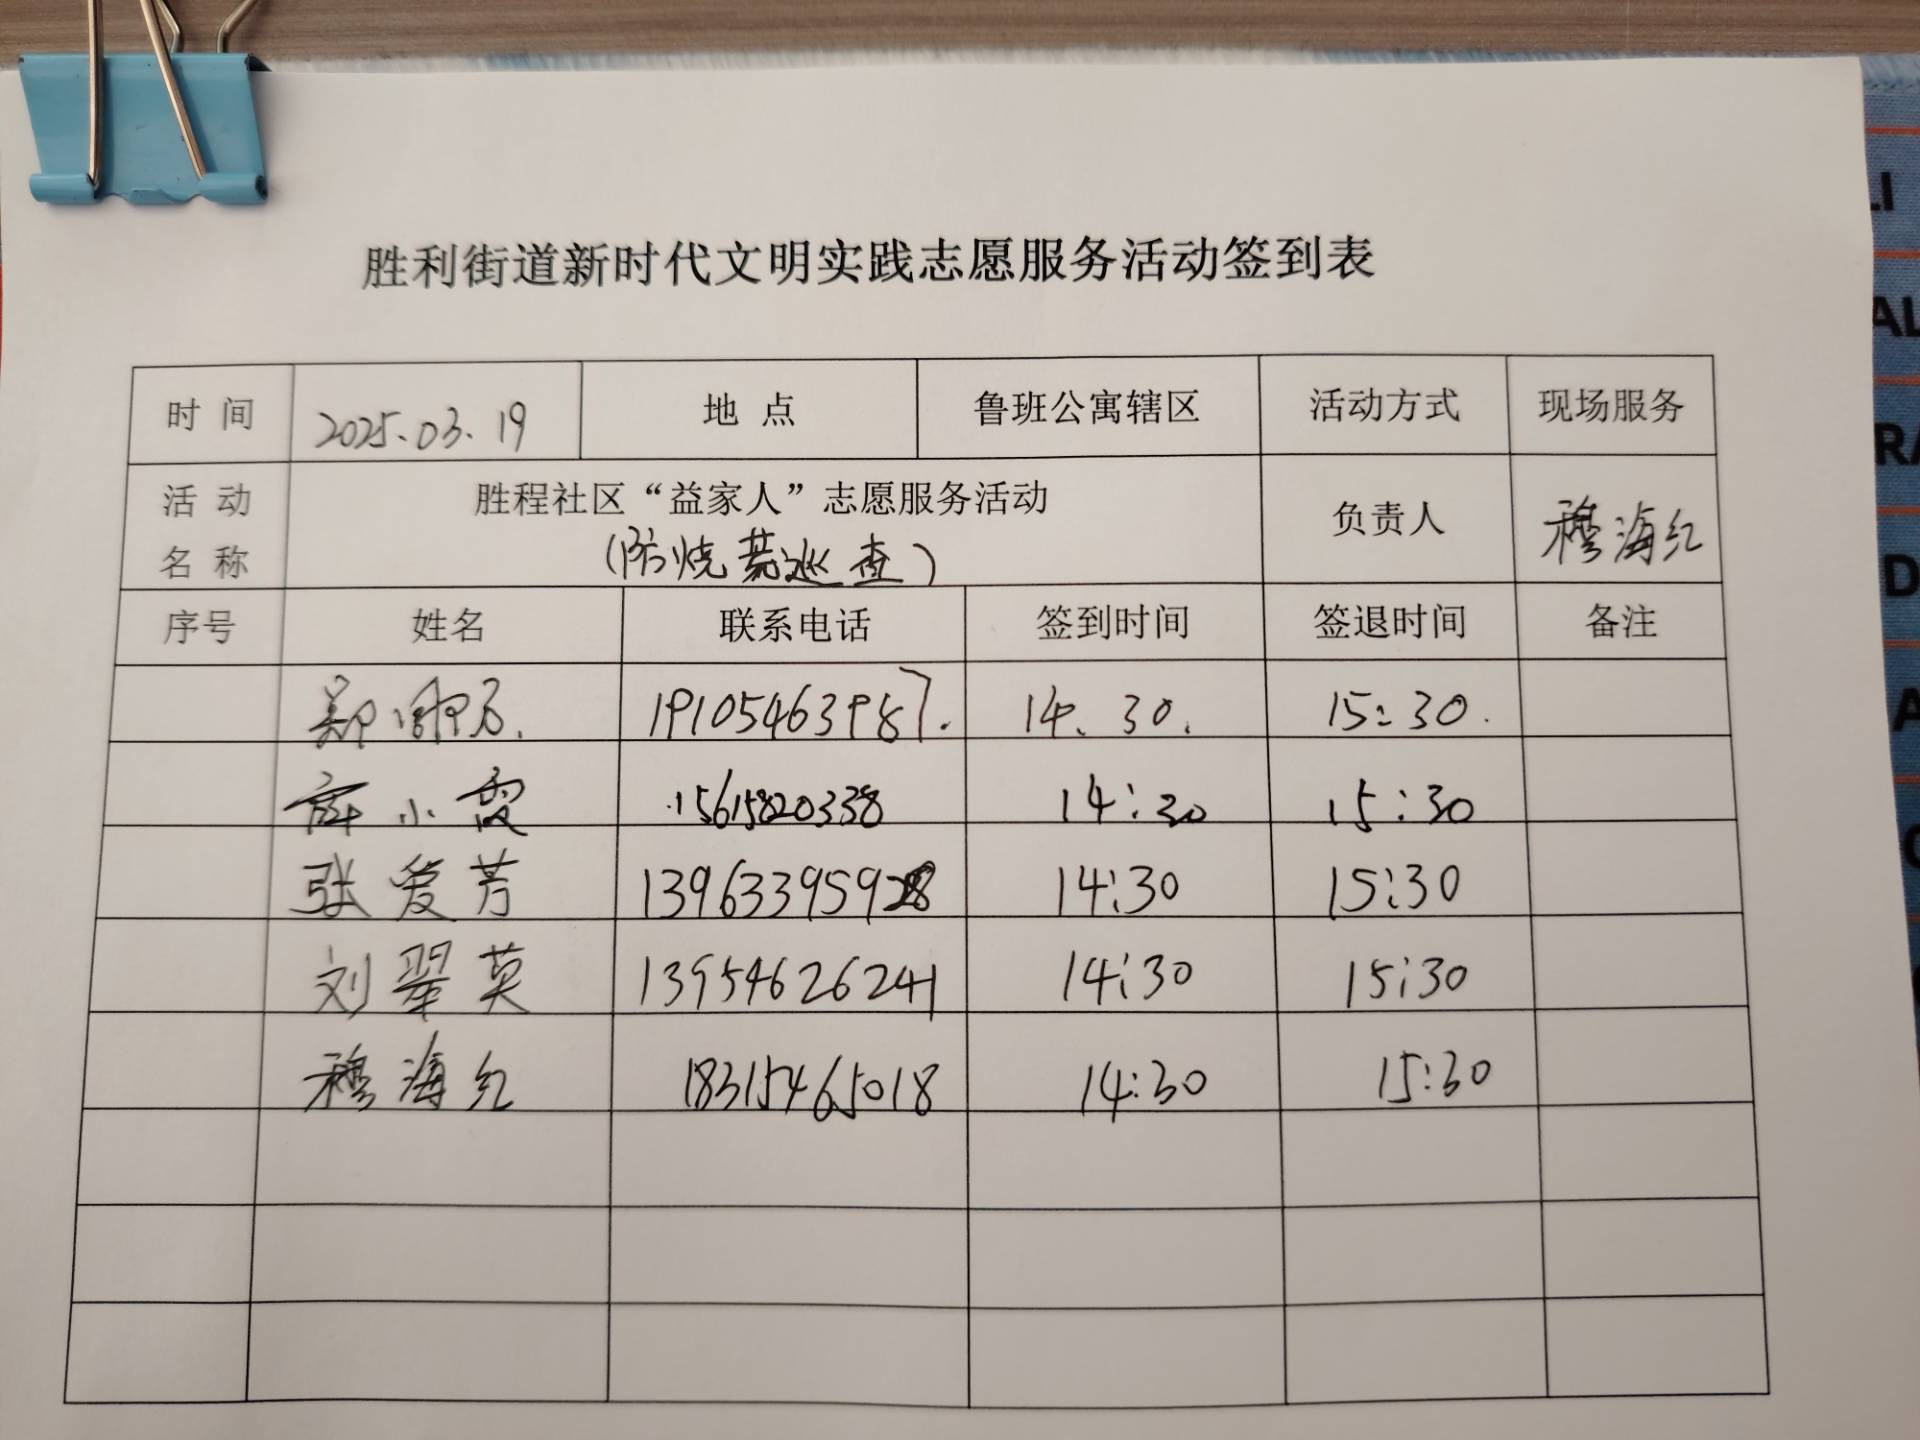 胜利街道新时代文明实践志愿服务活动签到表
时 间 2025.03.19 地 点 鲁班公寓辖区 活动方式 现场服务
活 动 名 称 胜程社区“益家人”志愿服务活动 负责人 穆海红
(防烧荒巡查)
序号 姓名 联系电话 签到时间 签退时间 备注
郑 19105463987. 14.30. 15:30.
薛小霞 15615820338 14:30 15:30
张爱芳 139633959 14:30 15:30
刘翠英 13954626241 14:30 15:30
穆海红 18315465018 14:30 15:30
LI
AL
RA
D
A